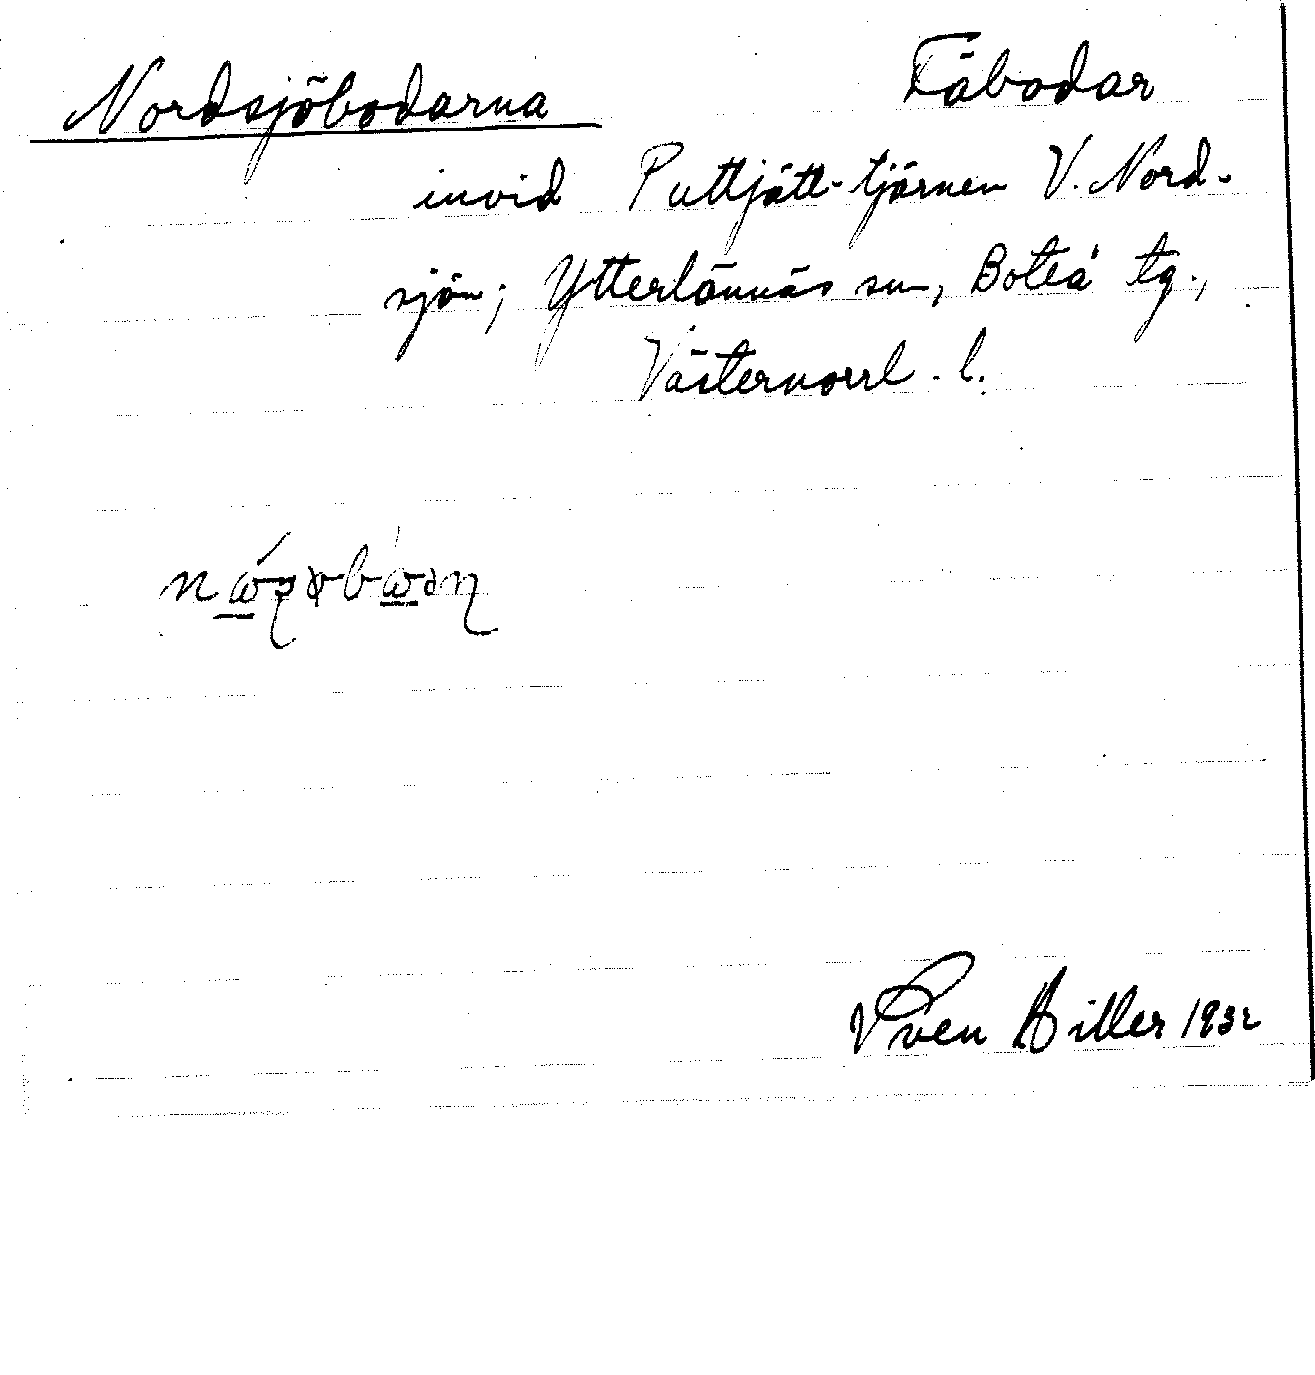 Nordsjöbodarna Fäbodar
invid Puttjätt-tjärnen V. Nord-
sjön; Ytterlännäs sn, Boteå tg.,
Västernorrl. l.
Sven Hiller 1932